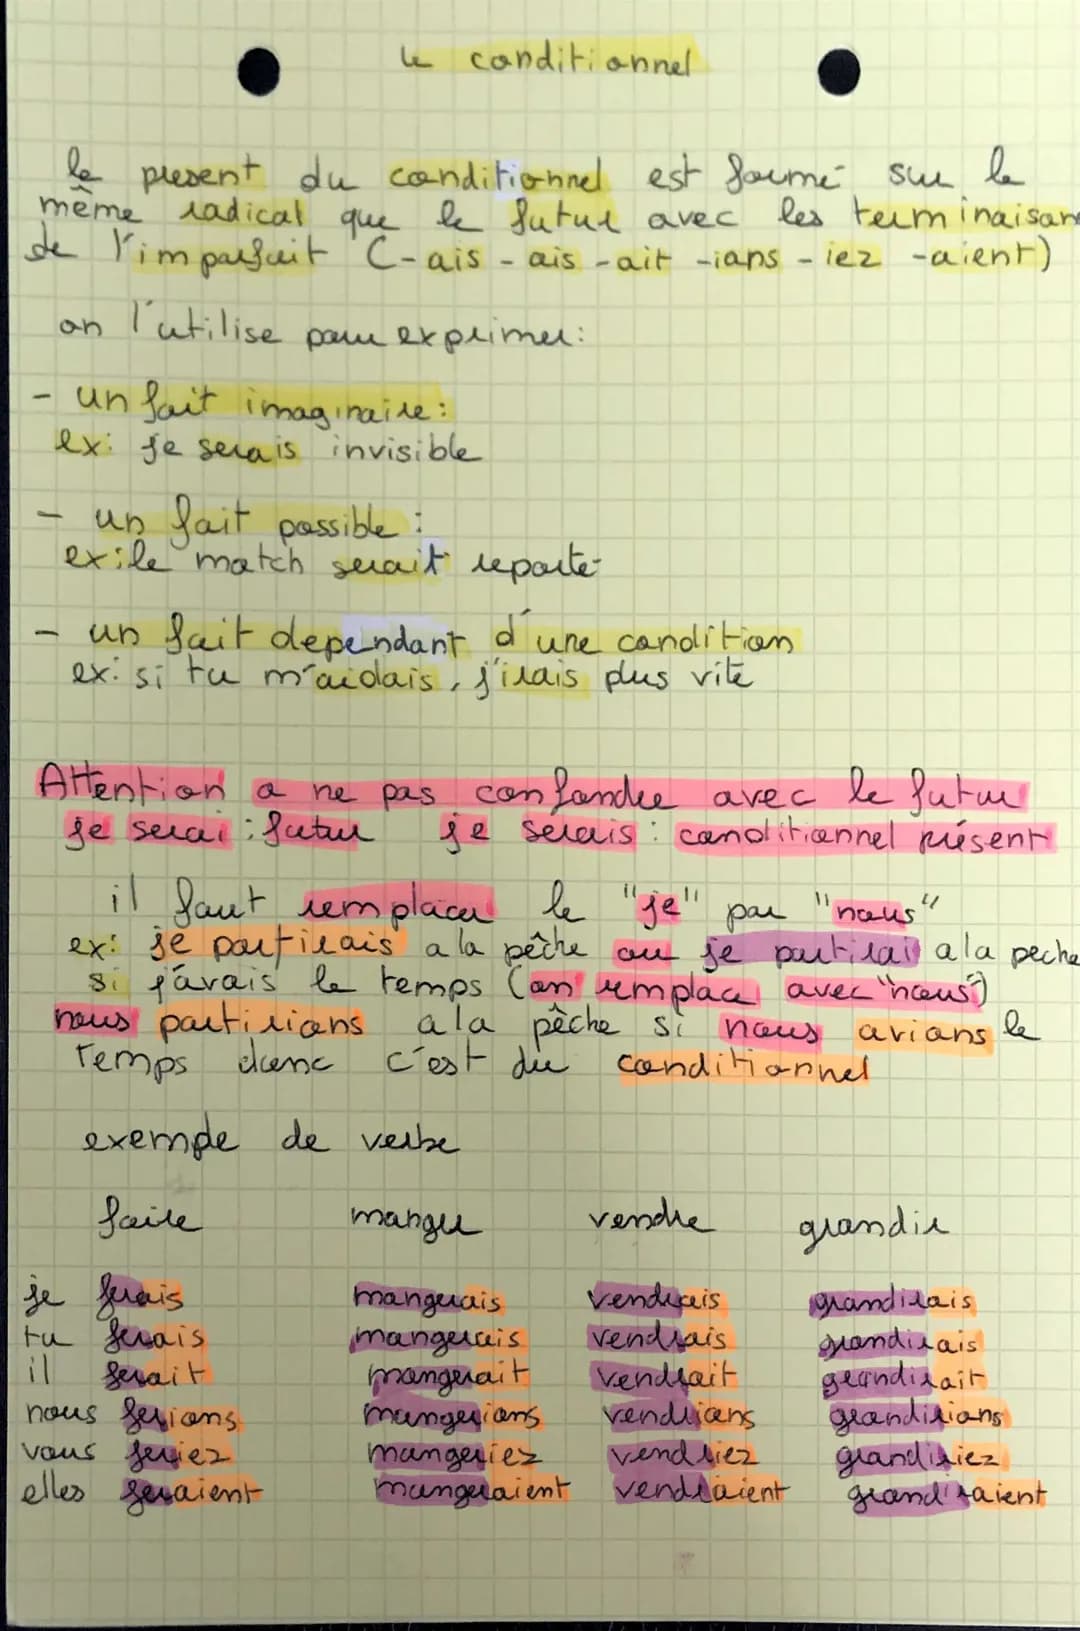 le conditionnel
le present du conditionnel est formé sur le
même radical que le futur avec les terminaisons
de l'imparfait (-ais -ais -ait -ions -iez -aient)
on l'utilise pour exprimer:
- un fait imaginaire:
ex: je serais invisible
- un fait possible:
ex: le match serait reporté
- un fait dependant d'une condition
ex: si tu m'aidais, j'irais plus vite
Attention a ne pas confondre avec le futur
je serai: futur je serais: conditionnel présent
il faut remplacer le "je" par "nous"
ex: je partirais a la pêche ou je partirai a la peche
si j'avais le temps (on remplace avec "nous")
nous partirions a la pêche si nous avions le
temps donc c'est du conditionnel
exemple de verbe
faire manger vendre grandir
je ferais mangerais vendrais grandirais
tu ferais mangerais vendrais grandirais
il ferait mangerait vendrait grandirait
nous ferions mangerions vendrions grandirions
vous feriez mangeriez vendriez grandiriez
elles feraient mangeraient vendraient grandiraient